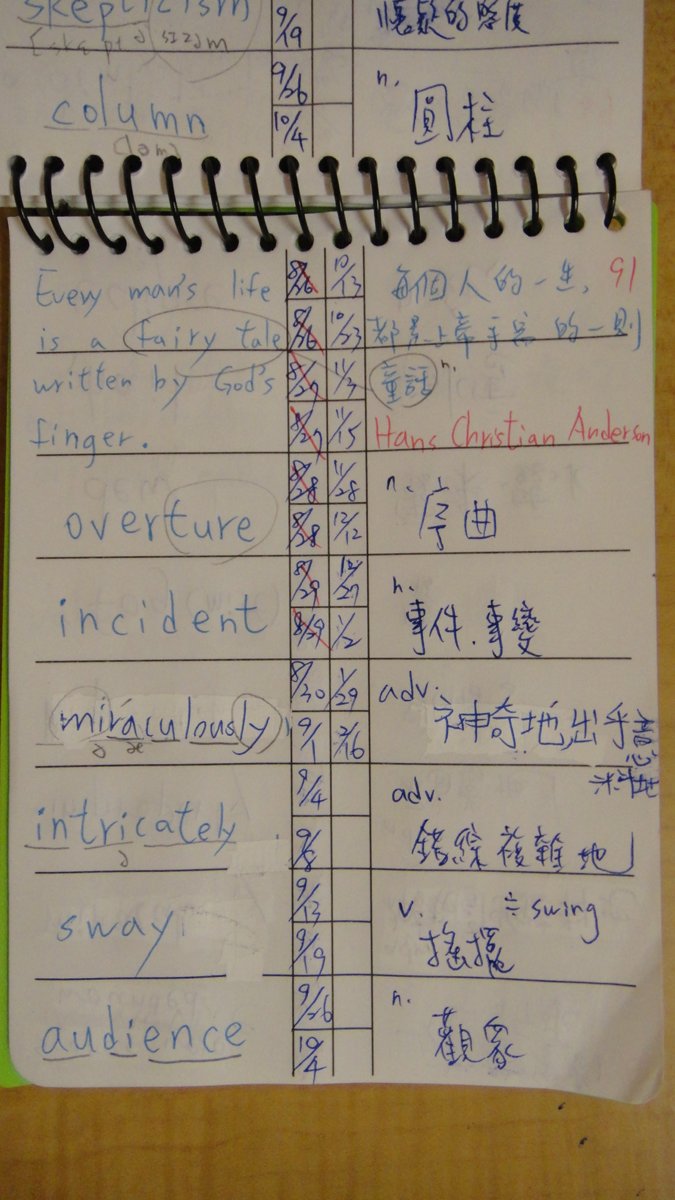 skepticism
9/19
懷疑的態度
column
(ləm)
9/26
10/4
n.
圓柱
Every man's life
is a fairy tale
written by God's
finger.
8/26 10/13
8/26 10/23
8/27 11/3
8/27 11/15
每個人的一生, 91
都是上帝手寫的一則
童話 n.
Hans Christian Anderson
overture
8/28 11/28
8/28 12/12
n.
序曲
incident
8/29 12/27
8/29 1/2
n.
事件.事變
miraculously
ə æ
8/30 1/29
9/1 2/16
adv.
神奇地,出乎意
料地
intricately
ə
9/4
9/8
adv.
錯綜複雜地
sway
9/13
9/19
v. ≒ swing
搖擺
audience
9/26
10/4
n.
觀眾